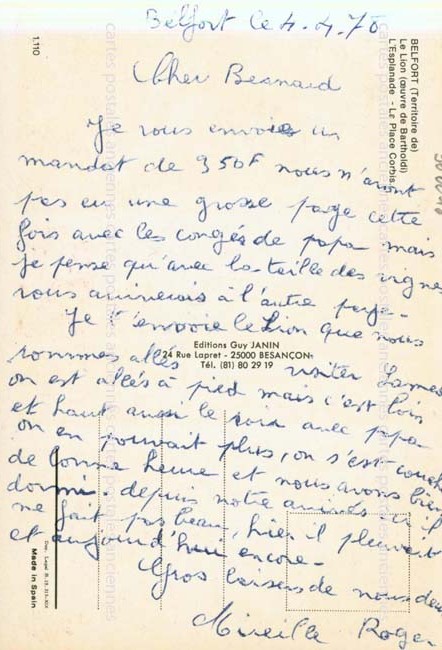 Belfort le 4.4.70
Cher Besnard
Je vous envoie un
mandat de 350F nous n'avons
pas eu une grosse paye cette
fois avec les congés de papa mais
je pense qu'avec la taille des vignes
vous arriverais à l'autre paye.
Je t'envoie le Lion que nous
sommes allés visiter Samedi
on est allés à pied mais c'est loin
et haut aussi le soir avec papa
on en pouvait plus, on s'est couché
de bonne heure et nous avons bien
dormi. depuis notre arrivés il
ne fait pas beau, hier il pleuvait
et aujourd'hui encore.
Gros baisers de nous deux
Mireille Roger
BELFORT (Territoire de)
Le Lion (œuvre de Bartholdi)
L'Esplanade - La Place Corbis
1.110
Editions Guy JANIN
24 Rue Lapret - 25000 BESANÇON
Tél. (81) 80 29 19
Made in Spain